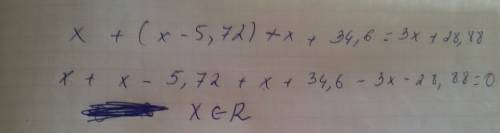 x + (x - 5,72) + x + 34,6 = 3x + 28,88
x + x - 5,72 + x + 34,6 - 3x - 28,88 = 0
x ∈ R